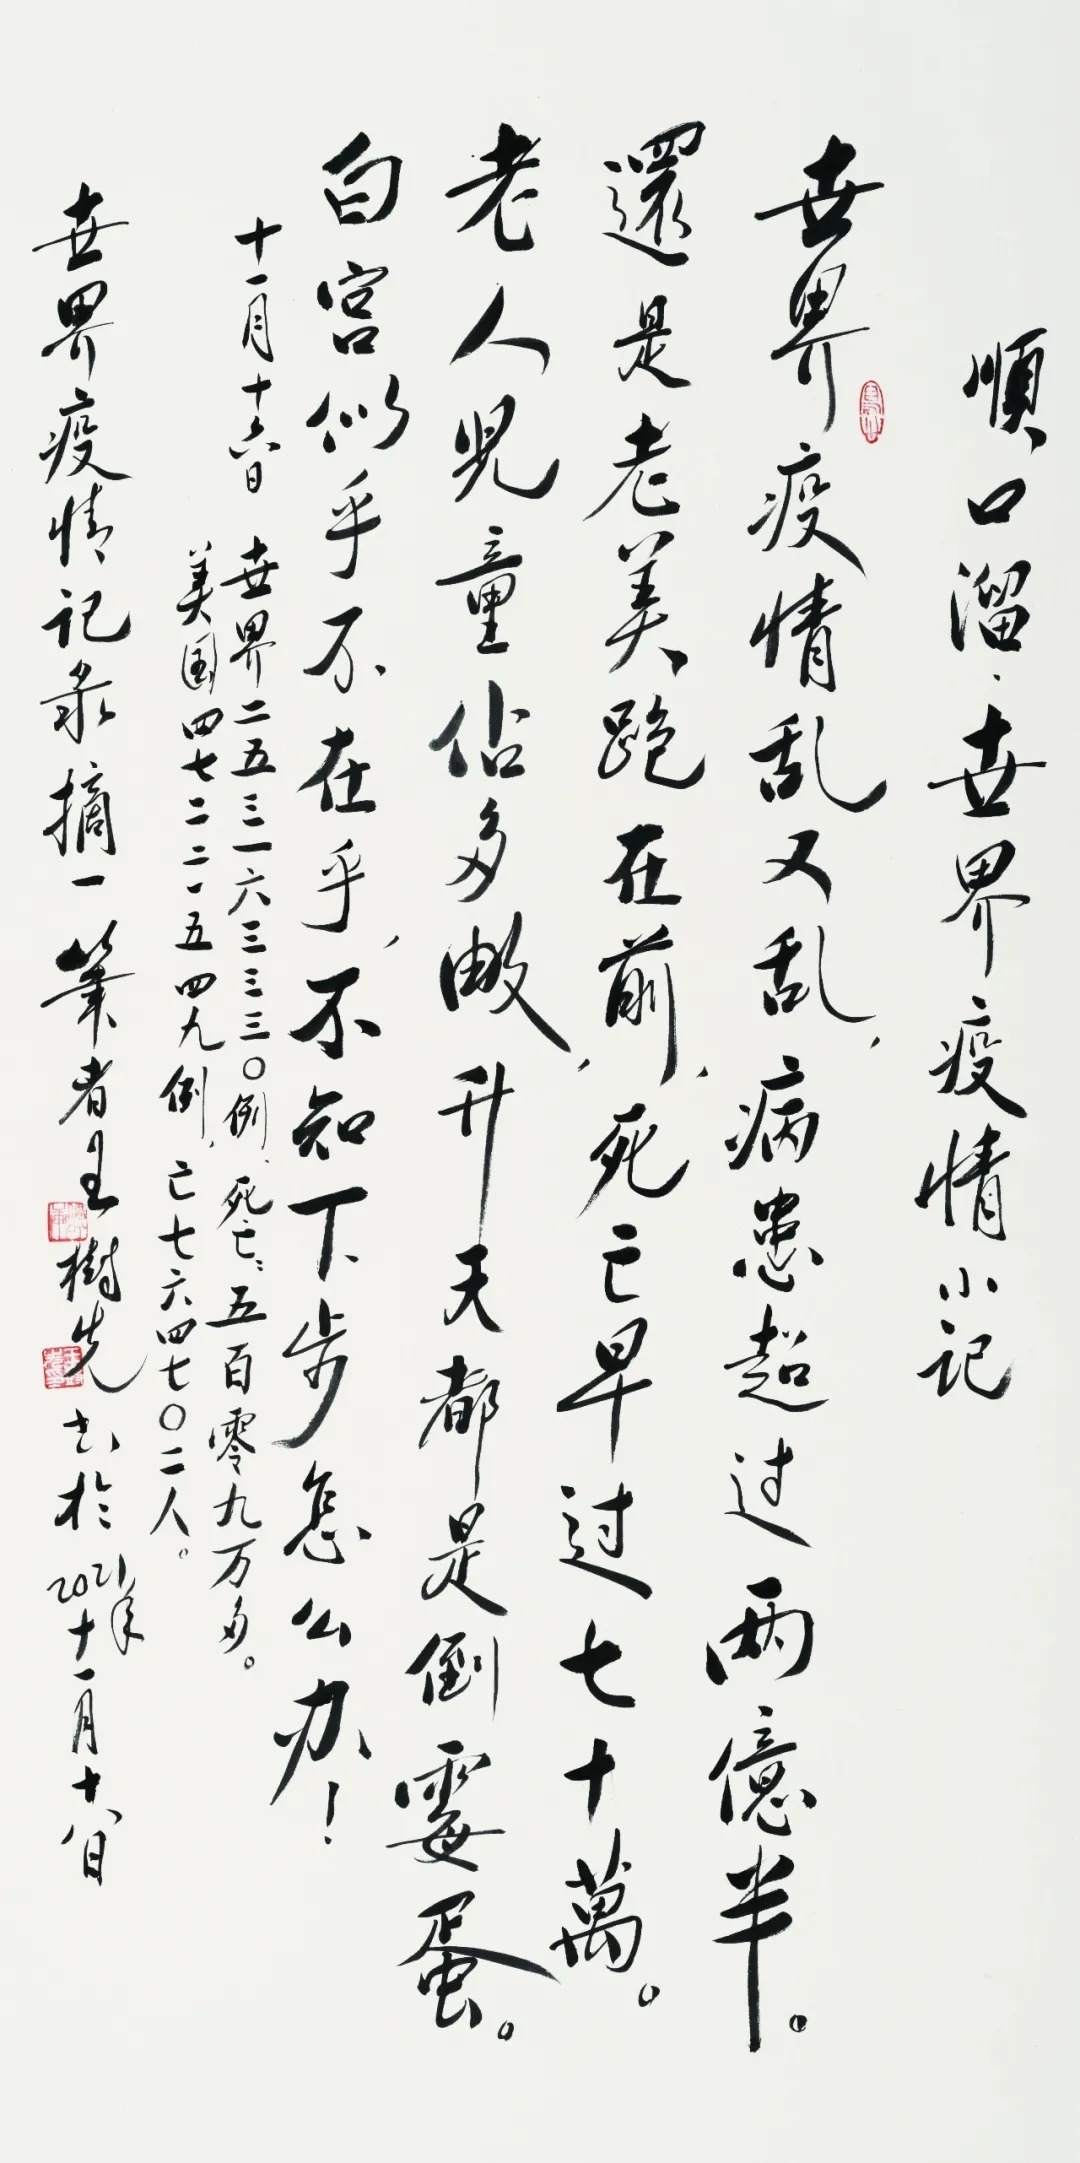 順口溜、世界疫情小记
世界疫情乱又乱，病患超过两億半。
還是老美跑在前，死亡早过七十萬。
老人児童佔多畝，升天都是倒霉蛋。
白宮似乎不在乎，不知下步怎么办！
十一月十六日 世界二五三一六三三三〇例、死亡：五百零九万多。
美国四七二二一五四九例，亡七六四七〇二人。
世界疫情记录摘一 筆者王樹先 书於2021年十一月十八日